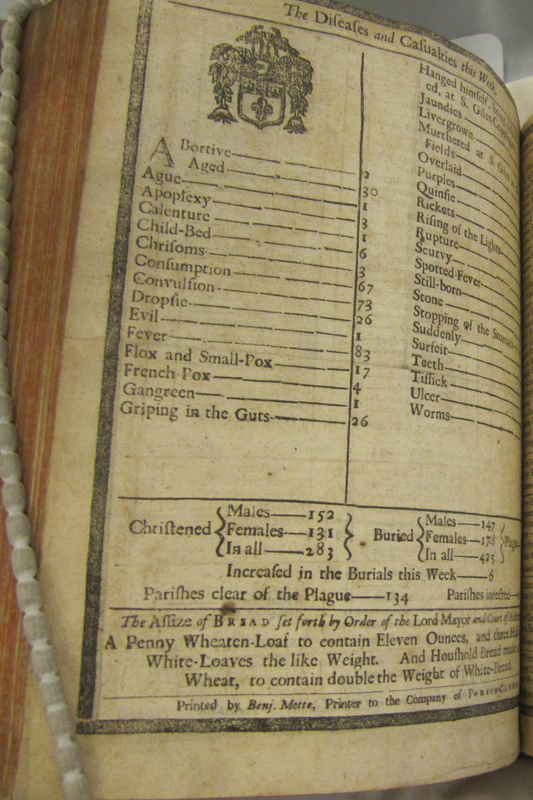 The Diſeaſes and Caſualties this Week.
Abortive 2
Aged 30
Ague 1
Apoplexy 3
Calenture 1
Child-Bed 6
Chriſoms 3
Conſumption 67
Convulſion 73
Dropſie 26
Evil 1
Fever 83
Flox and Small-Pox 17
French Pox 4
Gangreen 1
Griping in the Guts 26
Hanged himſelf
ed, at S. Giles
Jaundies
Livergrown
Murthered at S. Giles
Fields
Overlaid
Purples
Quinſie
Rickets
Riſing of the Lights
Rupture
Scurvy
Spotted Fever
Still-born
Stone
Stopping of the
Suddenly
Surfeit
Teeth
Tiſſick
Ulcer
Worms
Chriſtened
Males 152
Females 131
In all 283
Buried
Males 147
Females 178
In all 425
Increaſed in the Burials this Week 6
Pariſhes clear of the Plague 134 Pariſhes infected
The Aſſize of BREAD ſet forth by Order of the Lord Mayor and Court of
A Penny Wheaten-Loaf to contain Eleven Ounces, and three
White-Loaves the like Weight. And Houſhold Bread made
Wheat, to contain double the Weight of White-Bread.
Printed by Benj. Motte, Printer to the Company of